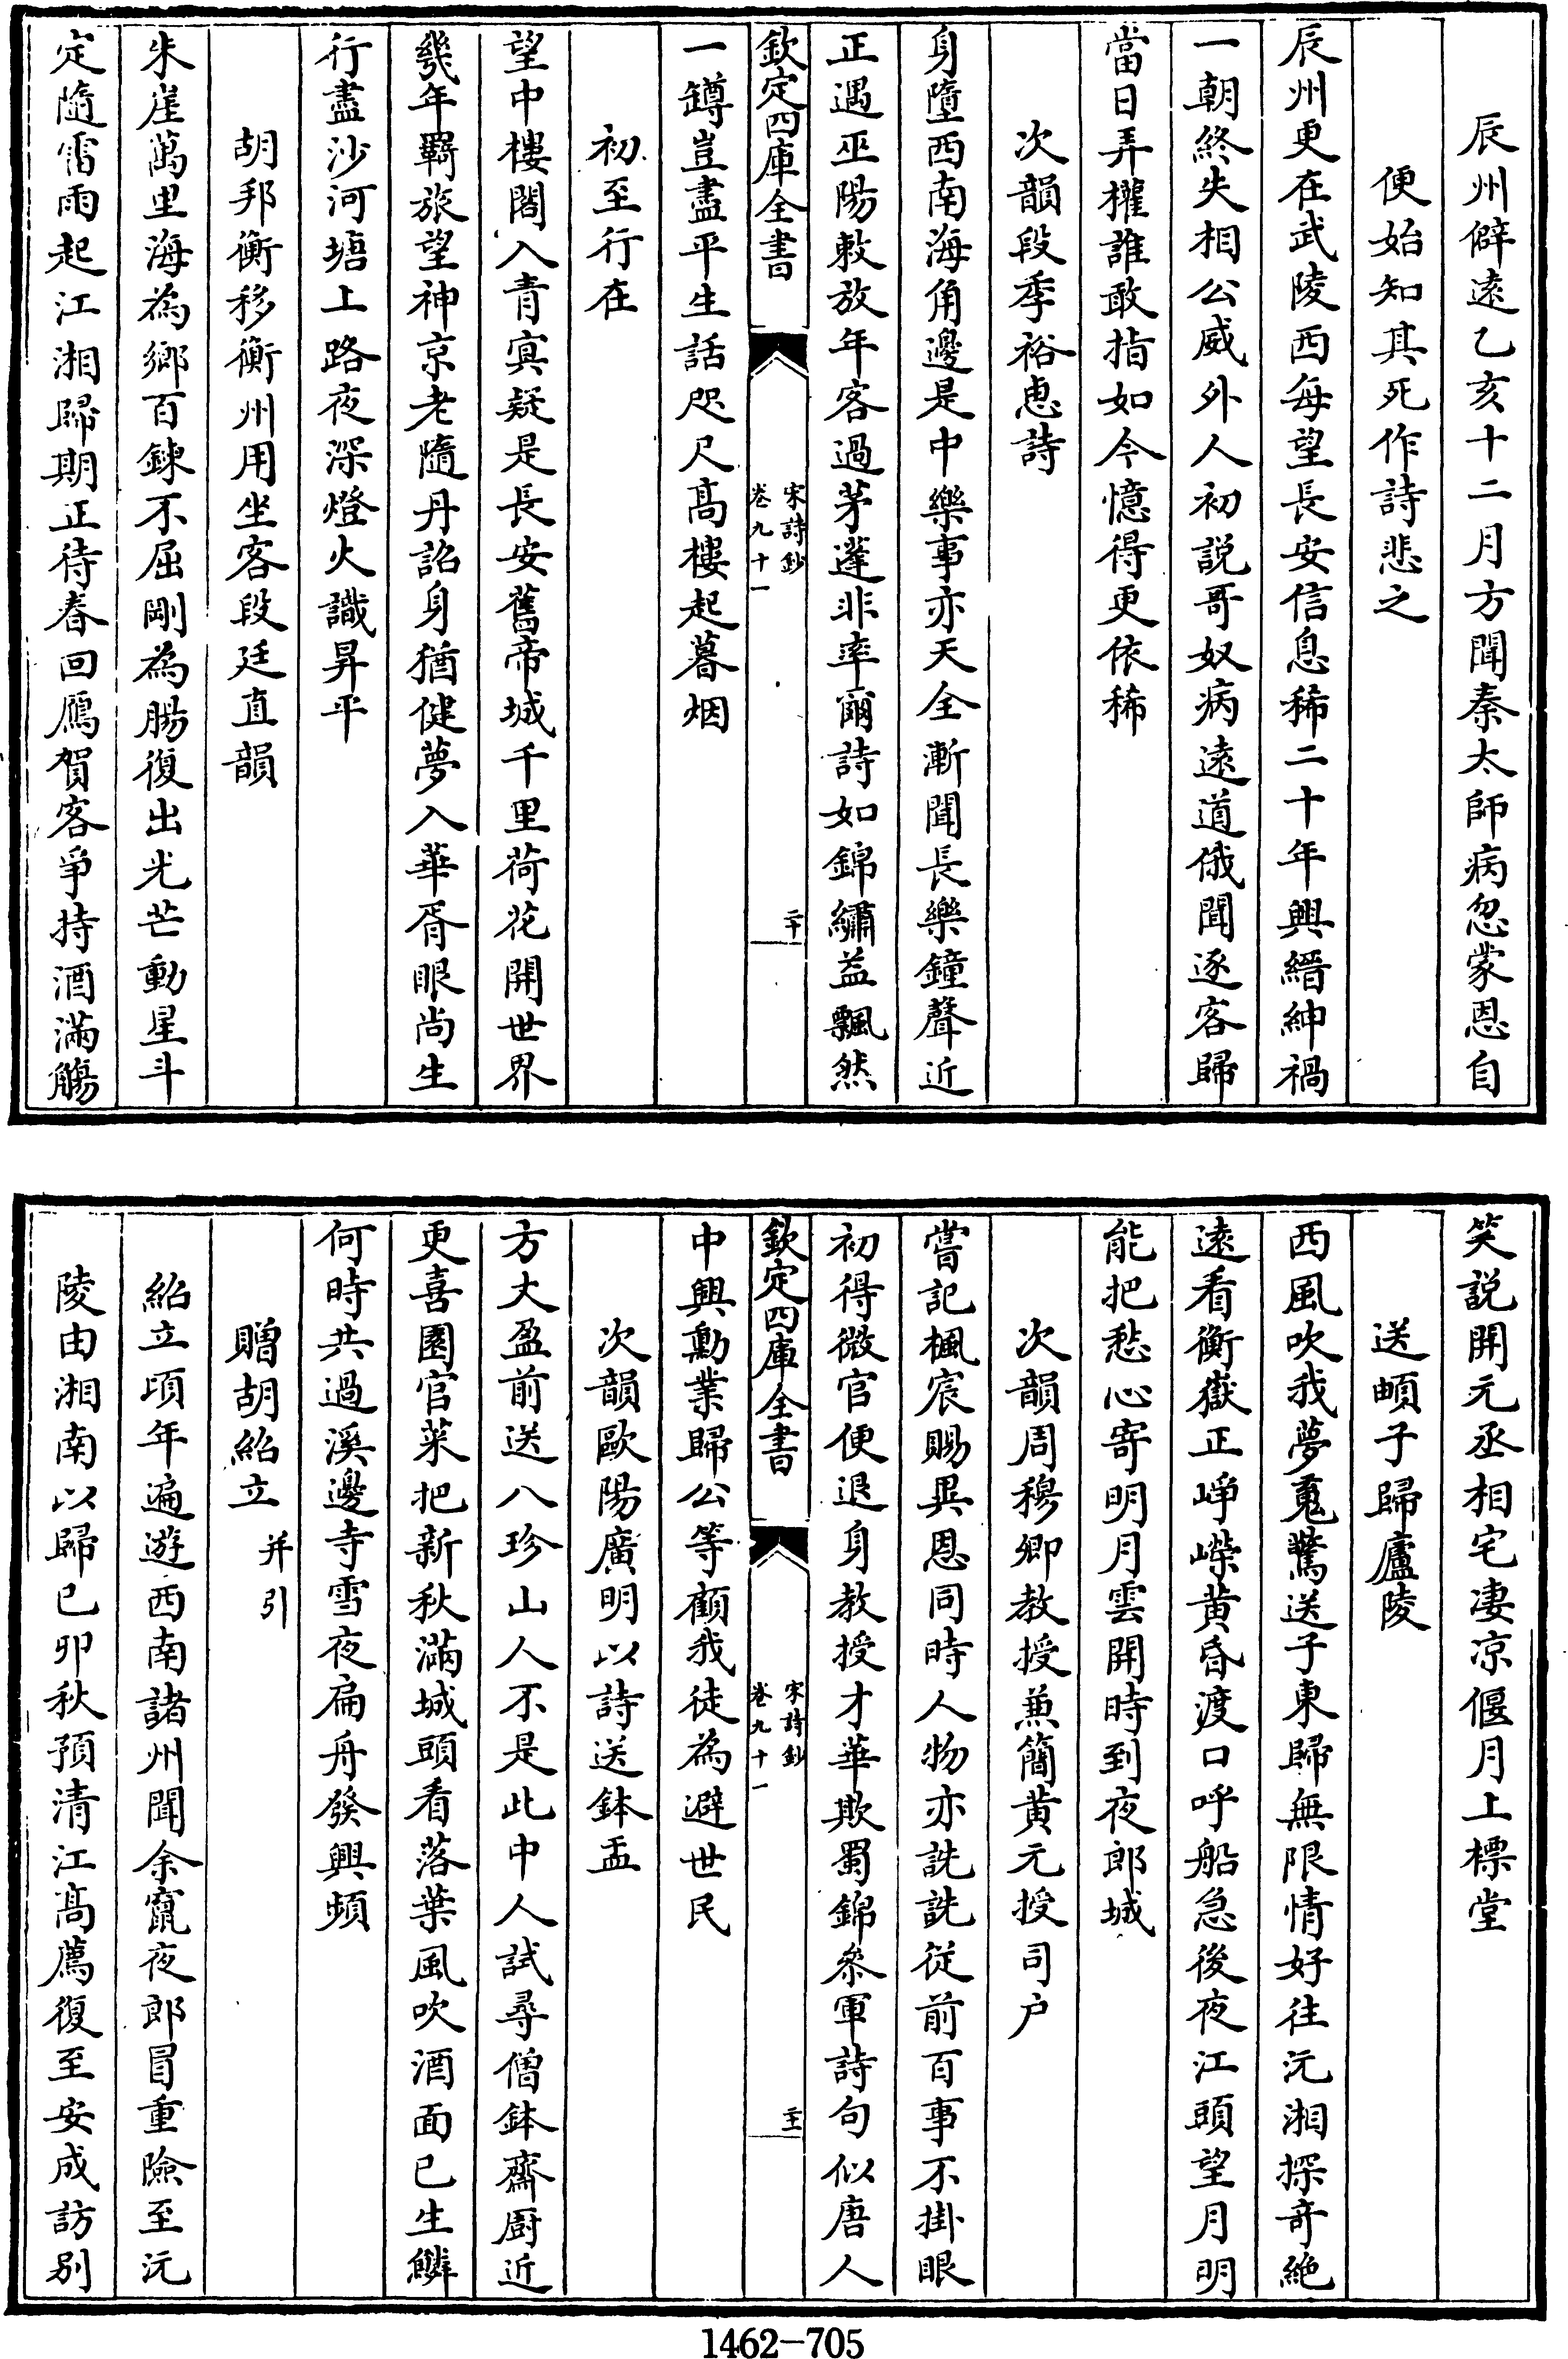 辰州僻遠乙亥十二月方聞秦太師病忽蒙恩自
便始知其死作詩悲之
辰州更在武陵西每望長安信息稀二十年興縉紳禍
一朝終失相公威外人初説哥奴病遠道俄聞逐客歸
當日弄權誰敢指如今憶得更依稀
次韻段季裕惠詩
身墮西南海角邊是中樂事亦天全漸聞長樂鐘聲近
正遇巫陽敕放年客過茅蓬非率爾詩如錦繡益飄然
欽定四庫全書
宋詩鈔
卷九十一
二十
一罇豈盡平生話咫尺高樓起暮烟
初至行在
望中樓閣入青冥疑是長安舊帝城千里荷花開世界
幾年羇旅望神京老隨丹詔身猶健夢入華胥眼尚生
行盡沙河塘上路夜深燈火識昇平
胡邦衡移衡州用坐客段廷直韻
朱崖萬里海為鄉百鍊不屈剛為腸復出光芒動星斗
定隨雷雨起江湘歸期正待春回鴈賀客爭持酒滿觴
笑説開元丞相宅凄凉偃月上標堂
送頔子歸廬陵
西風吹我夢䰟驚送子東歸無限情好往沅湘探奇絶
遠看衡嶽正崢嶸黄昏渡口呼船急後夜江頭望月明
能把愁心寄明月雲開時到夜郎城
次韻周穆卿教授兼簡黄元授司户
嘗記楓宸賜異恩同時人物亦詵詵從前百事不掛眼
初得微官便退身教授才華欺蜀錦叅軍詩句似唐人
欽定四庫全書
宋詩鈔
卷九十一
二十一
中興勳業歸公等顧我徒為避世民
次韻歐陽廣明以詩送鉢盂
方丈盈前送八珍山人不是此中人試尋僧鉢齋厨近
更喜園官菜把新秋滿城頭看落葉風吹酒面已生鱗
何時共過溪邊寺雪夜扁舟發興頻
贈胡紹立 并引
紹立頃年遍遊西南諸州聞余竄夜郎冒重險至沅
陵由湘南以歸已卯秋預清江髙薦復至安成訪别
1462-705